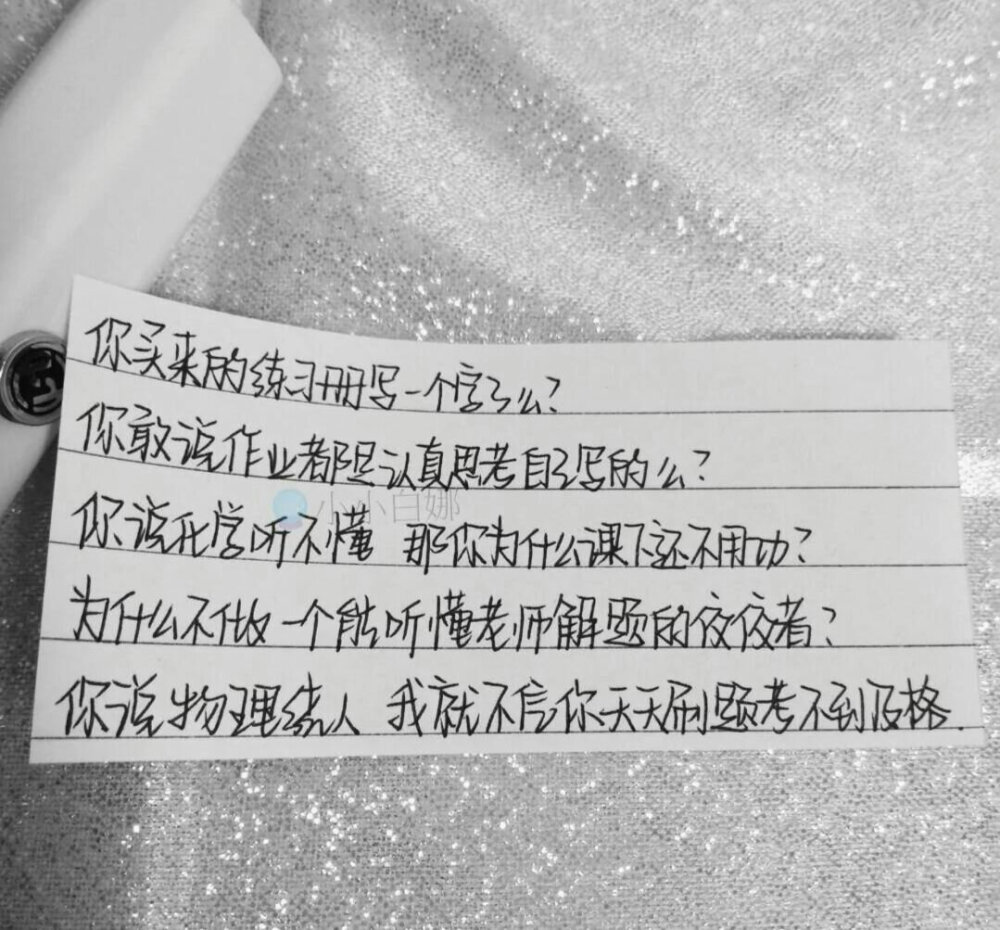 你买来的练习册写一个字了么?
你敢说作业都是认真思考自己写的么?
小小白娜
你说化学听不懂 那你为什么课下还不用功?
为什么不做一个能听懂老师解题的佼佼者?
你说物理绕人 我就不信你天天刷题考不到及格.